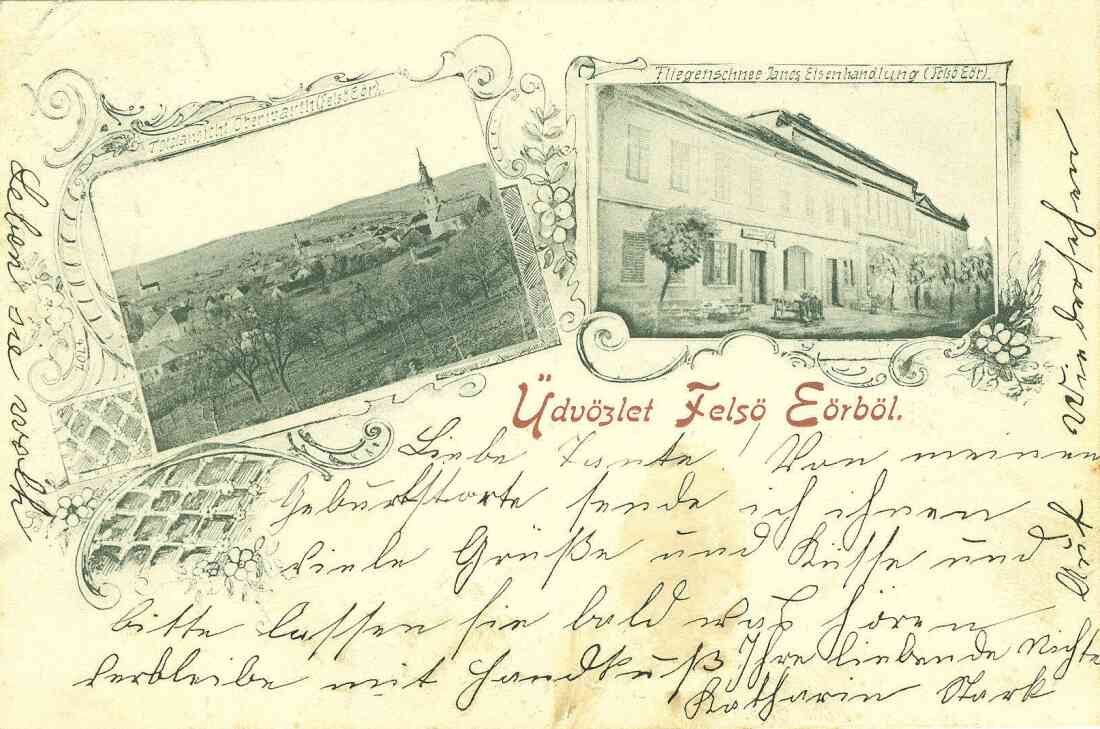 Totalansicht Oberwarth (Felsö Eör).
Fliegenschnee Janos Eisenhandlung (Felsö Eör).
4107
Üdvözlet Felsö Eörböl.
Liebe Tante! Von meinen
Geburtstorte sende ich ihnen
viele Grüße und Küsse und
bitte lassen sie bald was hören
verbleibe mit Handkuß Ihre liebende Nichte
Katharin Stark
Gut angekommen
Leben sie wohl